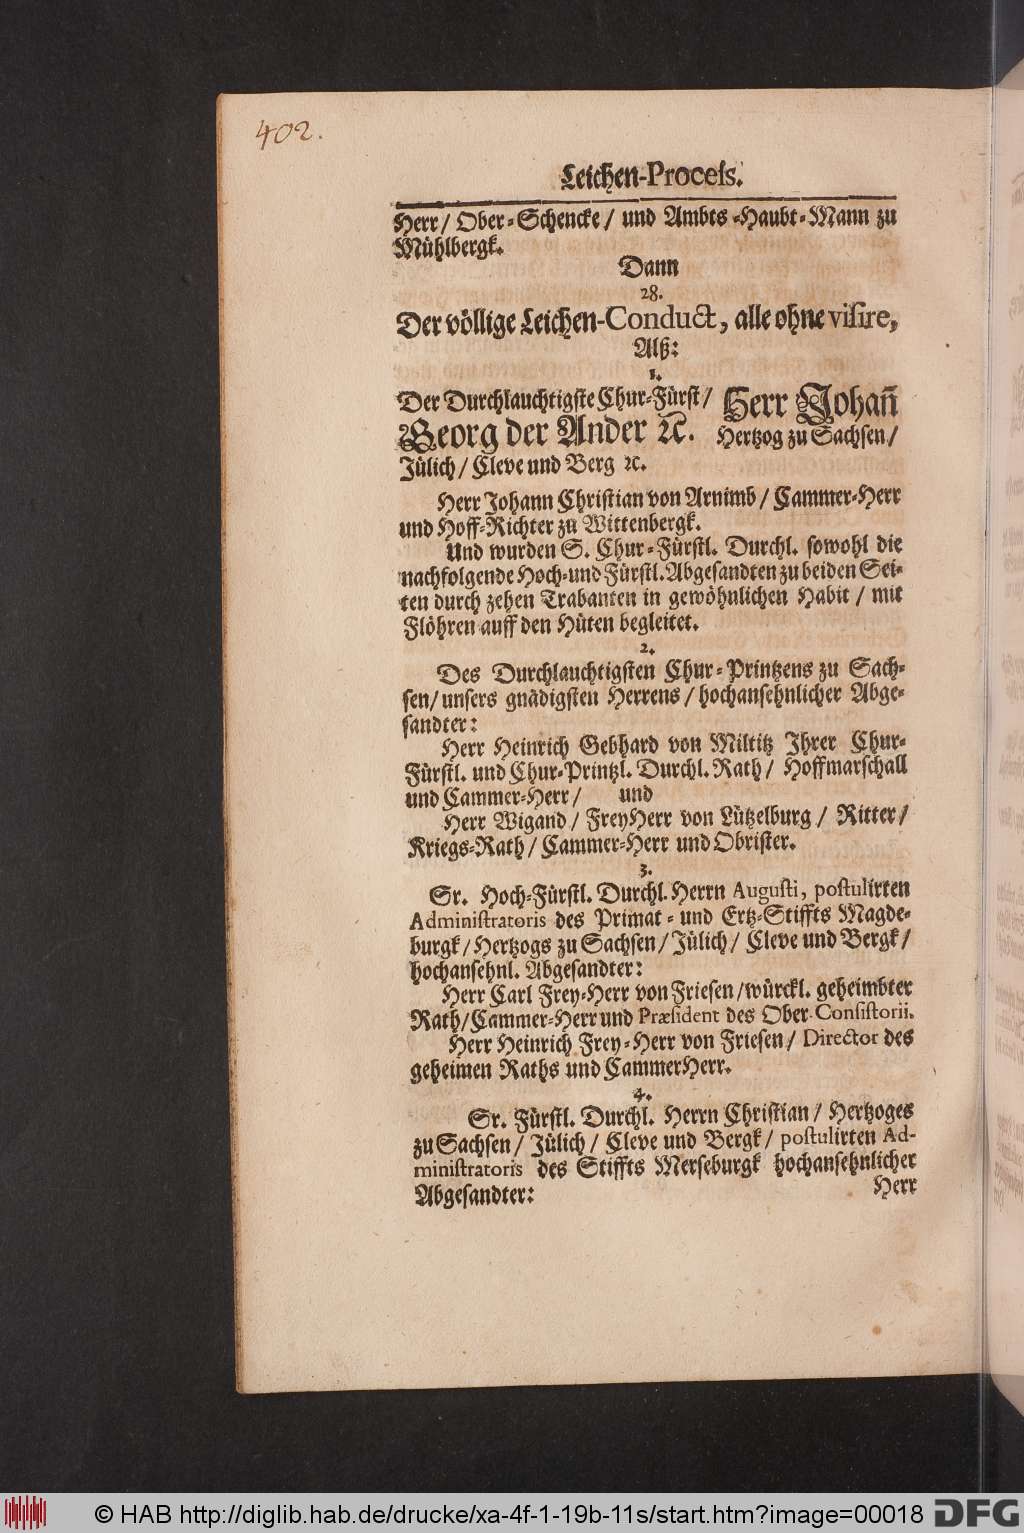 402.
Leichen-Procеſs.
Herr / Ober-Schencke / und Ambts-Haubt-Mann zu
Mühlbergk.
Dann
28.
Der völlige Leichen-Conduct, alle ohne viſire,
Alß:
1.
Der Durchlauchtigſte Chur-Fürſt / Herr Johañ
Georg der Ander ꝛc. Hertzog zu Sachſen /
Jülich / Cleve und Berg ꝛc.
Herr Johann Chriſtian von Arnimb / Cammer-Herr
und Hoff-Richter zu Wittenbergk.
Und wurden S. Chur-Fürſtl. Durchl. ſowohl die
nachfolgende Hoch-und Fürſtl. Abgeſandten zu beiden Sei-
ten durch zehen Trabanten in gewöhnlichen Habit / mit
Flöhren auff den Hüten begleitet.
2.
Des Durchlauchtigſten Chur-Printzens zu Sach-
ſen / unſers gnädigſten Herrens / hochanſehnlicher Abge-
ſandter:
Herr Heinrich Gebhard von Miltitz Ihrer Chur-
Fürſtl. und Chur-Printzl. Durchl. Rath / Hoffmarſchall
und Cammer-Herr / und
Herr Wigand / FreyHerr von Lützelburg / Ritter /
Kriegs-Rath / Cammer-Herr und Obriſter.
3.
Sr. Hoch-Fürſtl. Durchl. Herrn Auguſti, poſtulirten
Adminiſtratoris des Primat- und Ertz-Stiffts Magde-
burgk / Hertzogs zu Sachſen / Jülich / Cleve und Bergk /
hochanſehnl. Abgeſandter:
Herr Carl Frey-Herr von Frieſen / würckl. geheimbter
Rath / Cammer-Herr und Præſident des Ober-Conſiſtorii.
Herr Heinrich Frey-Herr von Frieſen / Director des
geheimen Raths und CammerHerr.
4.
Sr. Fürſtl. Durchl. Herrn Chriſtian / Hertzoges
zu Sachſen / Jülich / Cleve und Bergk / poſtulirten Ad-
miniſtratoris des Stiffts Merſeburgk hochanſehnlicher
Abgeſandter:
Herr
© HAB http://diglib.hab.de/drucke/xa-4f-1-19b-11s/start.htm?image=00018
DFG